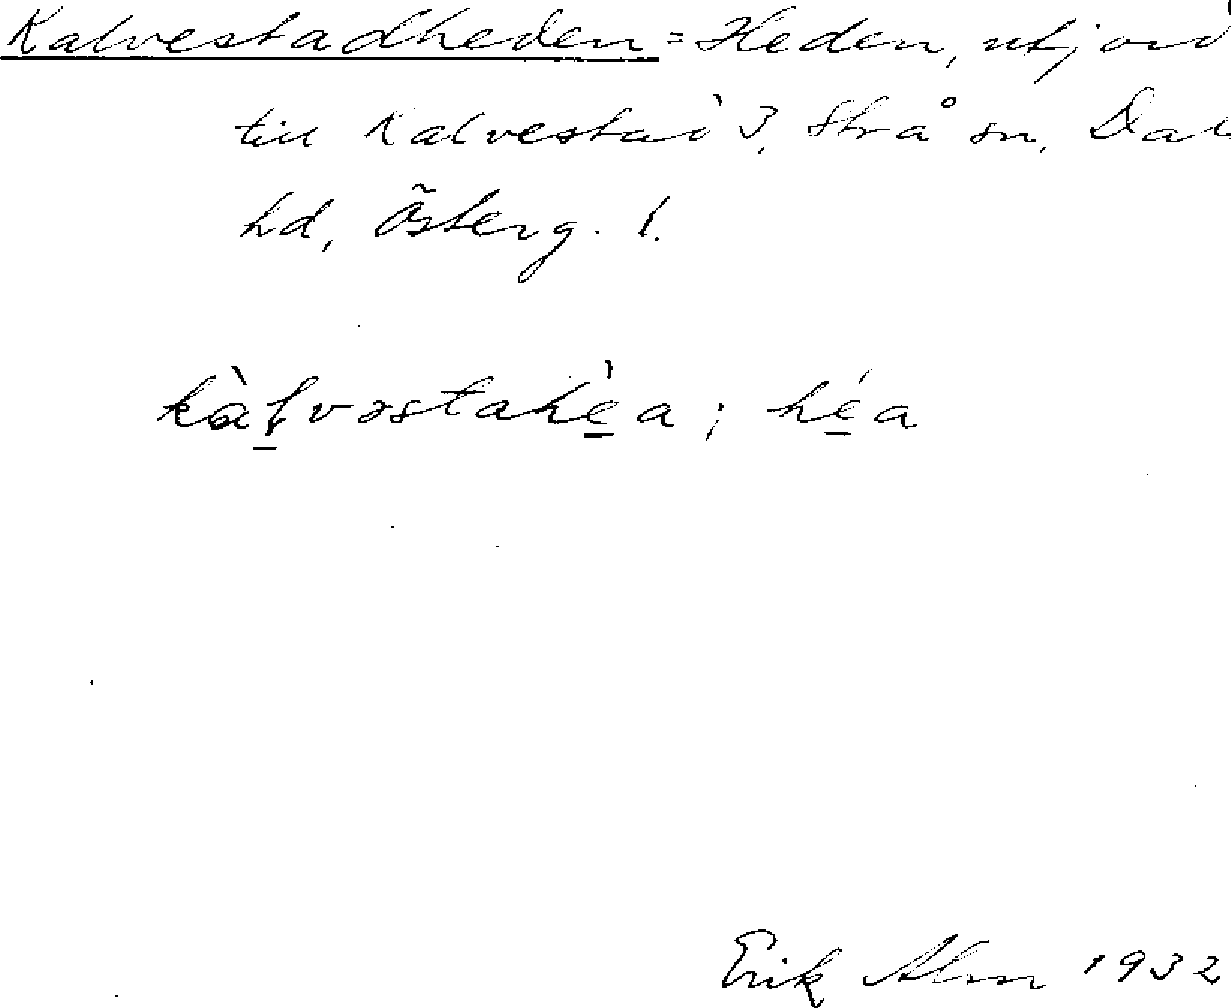 Kalvestadheden = Heden, utjord
till Kalvestad 3, Strå sn, Dals
hd, Österg. l.
kàl̠vəstahè̠a; hé̠a
Erik Alm 1932